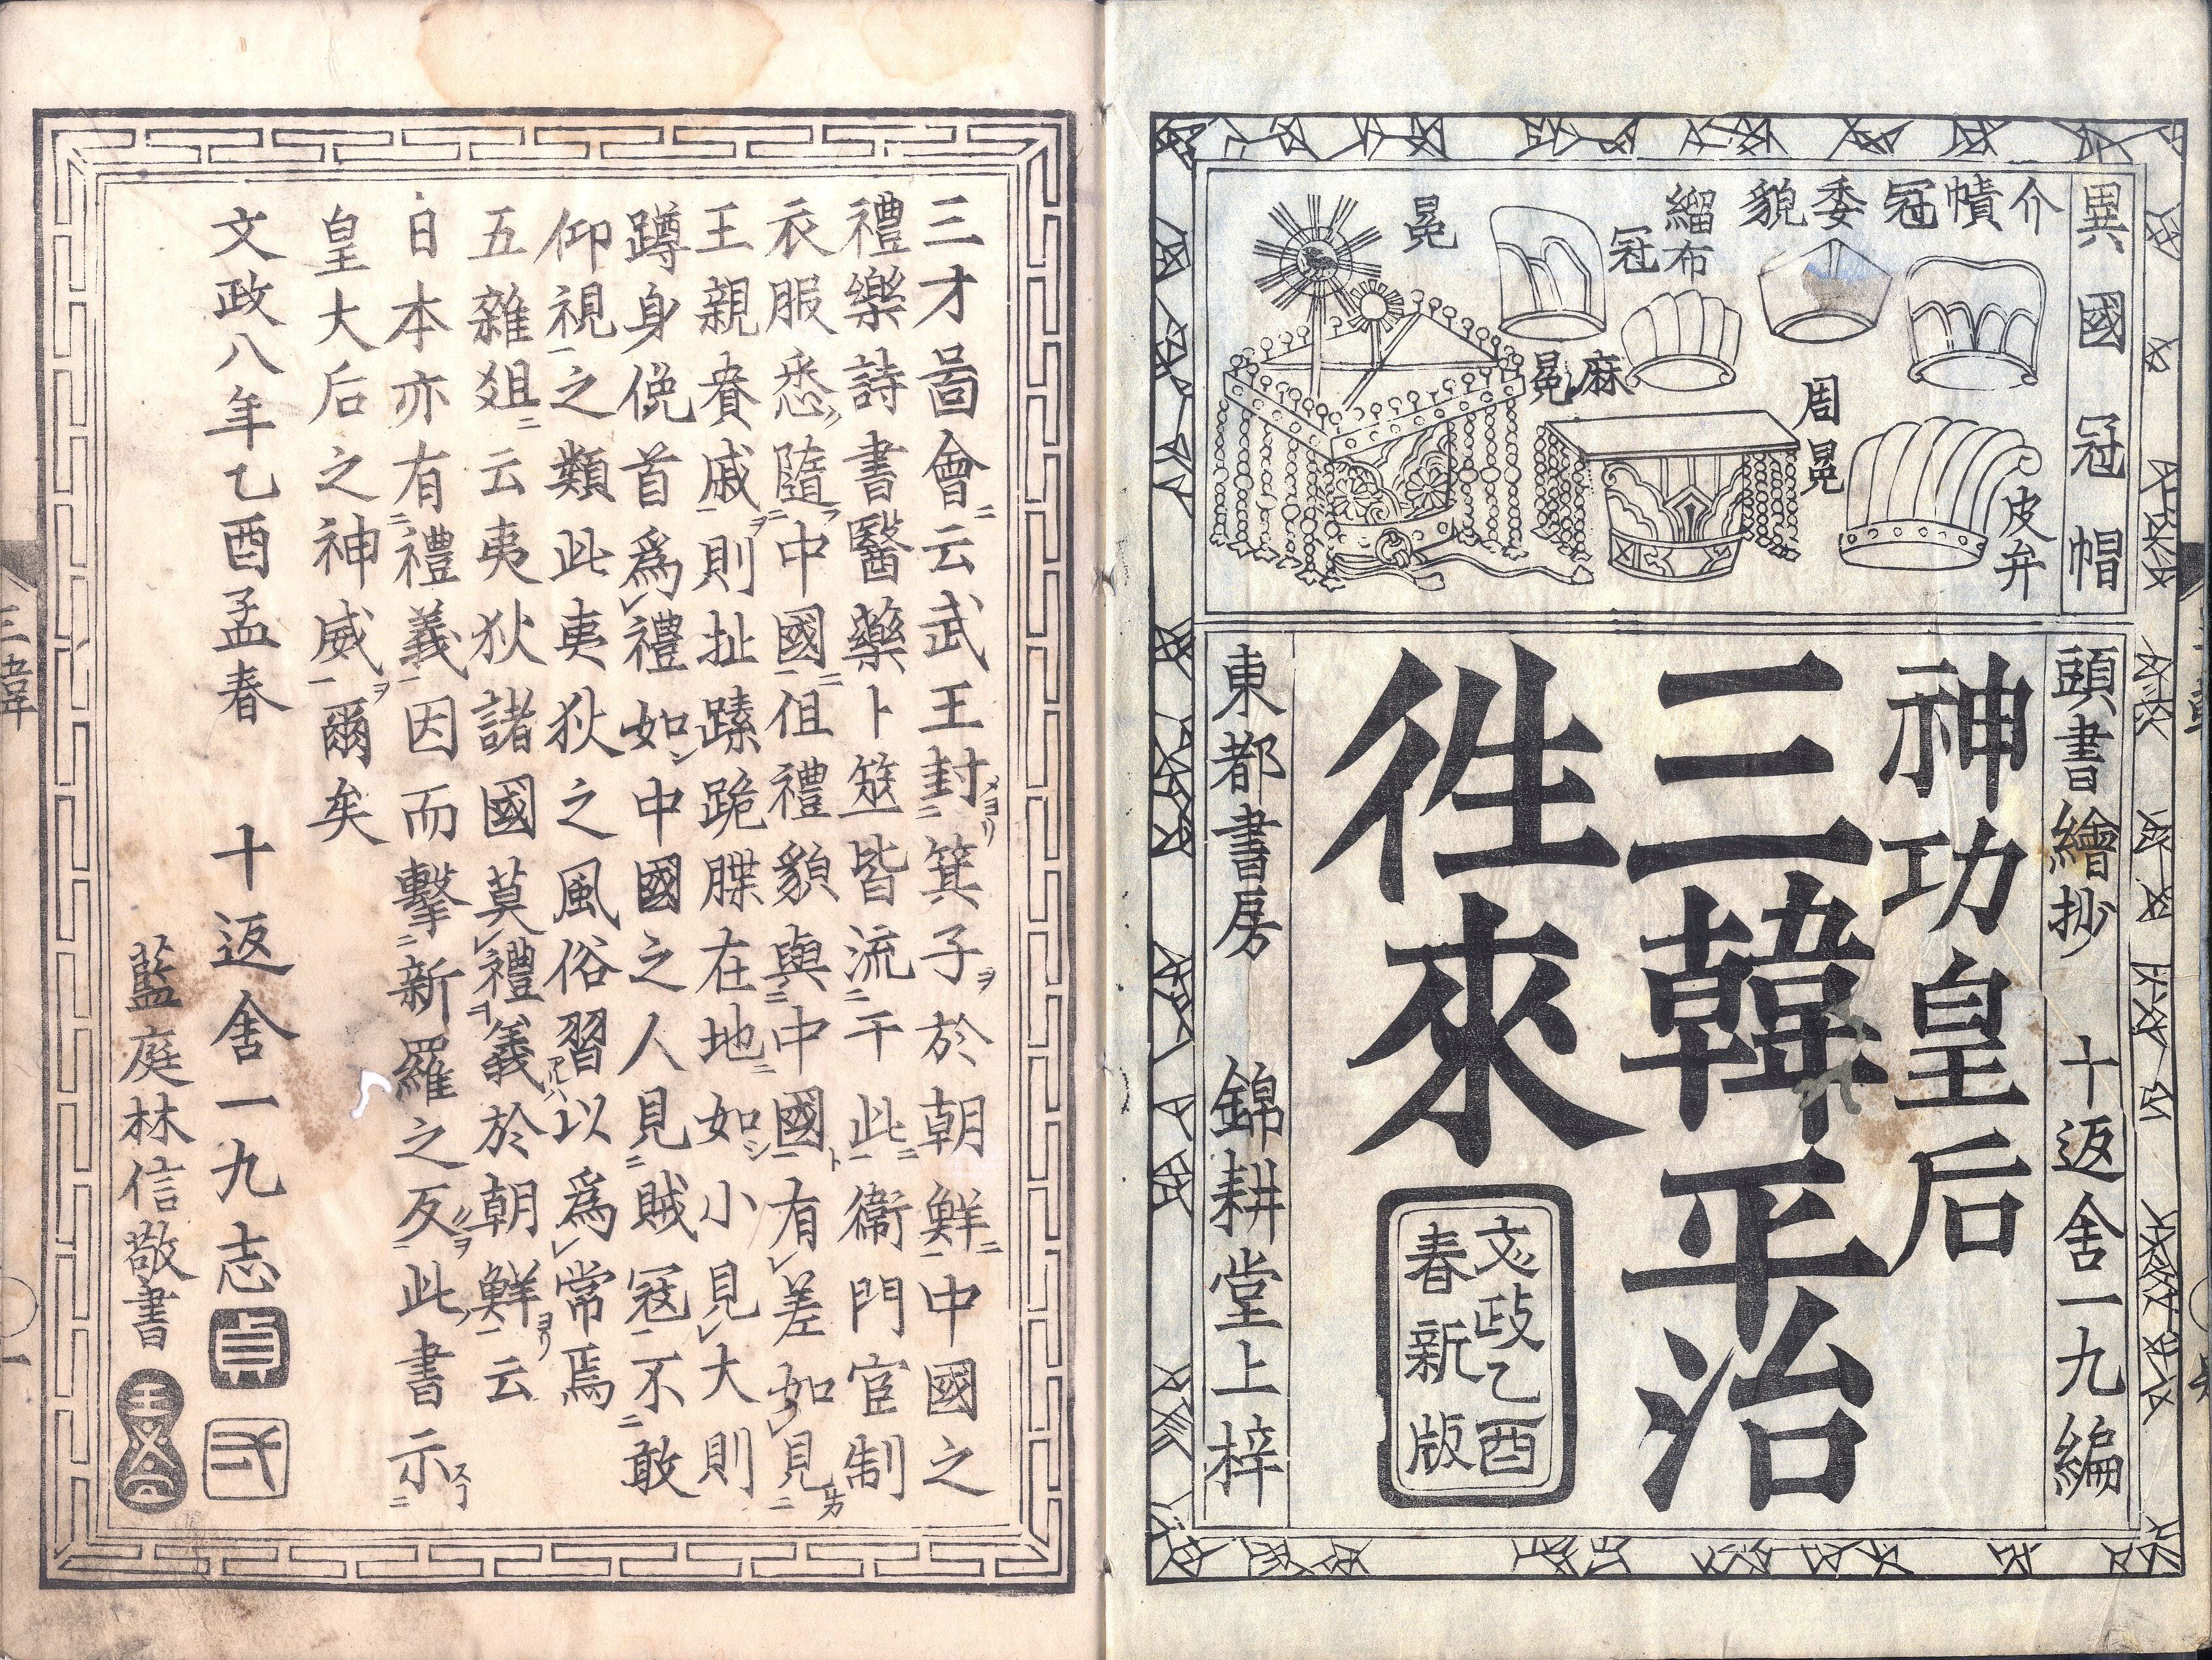 異國冠帽
介幘冠
委貌
緇布
冠
冕
皮弁
周冕
麻冕
頭書繪抄　十返舍一九編
神功皇后
三韓平治
徃來
文政乙酉
春新版
東都書房　錦耕堂上梓
三才啚會云武王封箕子於朝鮮中國之
禮樂詩書醫藥卜筮皆流于此衞門官制
衣服悉隨中國但禮貌與中國有差如見
王親貴戚則扯蹂跪𦜕在地如小見大則
蹲身俛首爲禮如中國之人見賊冦不敢
仰視之類此夷狄之風俗習以爲常焉
五雜爼云夷狄諸國莫禮義於朝鮮云
日本亦有禮義因而擊新羅之反此書示
皇大后之神威爾矣
文政八年乙酉孟春　十返舍一九志
藍庭林信敬書